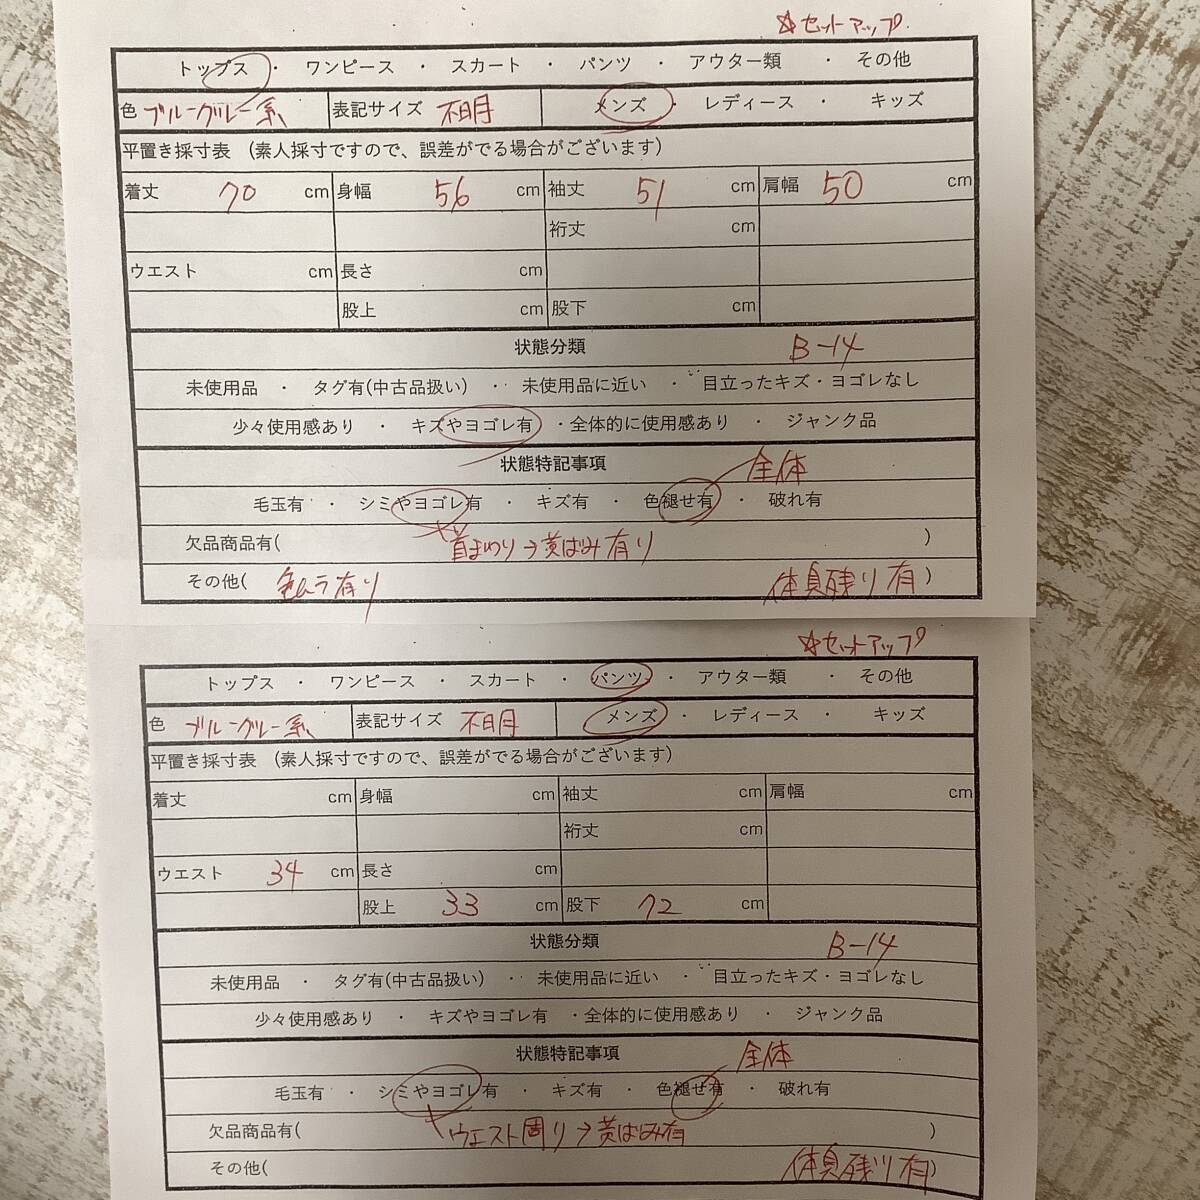 ☆セットアップ
トップス ・ ワンピース ・ スカート ・ パンツ ・ アウター類 ・ その他
色 ブルーグレー系 表記サイズ 不明 メンズ ・ レディース ・ キッズ
平置き採寸表 (素人採寸ですので、誤差がでる場合がございます)
着丈 70 cm 身幅 56 cm 袖丈 51 cm 肩幅 50 cm
裄丈 cm
ウエスト cm 長さ cm
股上 cm 股下 cm
状態分類 B-14
未使用品 ・ タグ有(中古品扱い) ・ 未使用品に近い ・ 目立ったキズ・ヨゴレなし
少々使用感あり ・ キズやヨゴレ有 ・全体的に使用感あり ・ ジャンク品
状態特記事項 全体
毛玉有 ・ シミやヨゴレ有 ・ キズ有 ・ 色褪せ有 ・ 破れ有
欠品商品有( 首まわり→黄ばみ有り )
その他( 色ムラ有り 体臭残り有 )
☆セットアップ
トップス ・ ワンピース ・ スカート ・ パンツ ・ アウター類 ・ その他
色 ブルーグレー系 表記サイズ 不明 メンズ ・ レディース ・ キッズ
平置き採寸表 (素人採寸ですので、誤差がでる場合がございます)
着丈 cm 身幅 cm 袖丈 cm 肩幅 cm
裄丈 cm
ウエスト 34 cm 長さ cm
股上 33 cm 股下 72 cm
状態分類 B-14
未使用品 ・ タグ有(中古品扱い) ・ 未使用品に近い ・ 目立ったキズ・ヨゴレなし
少々使用感あり ・ キズやヨゴレ有 ・全体的に使用感あり ・ ジャンク品
状態特記事項 全体
毛玉有 ・ シミやヨゴレ有 ・ キズ有 ・ 色褪せ有 ・ 破れ有
欠品商品有( ウエスト周り→黄ばみ有 )
その他( 体臭残り有 )